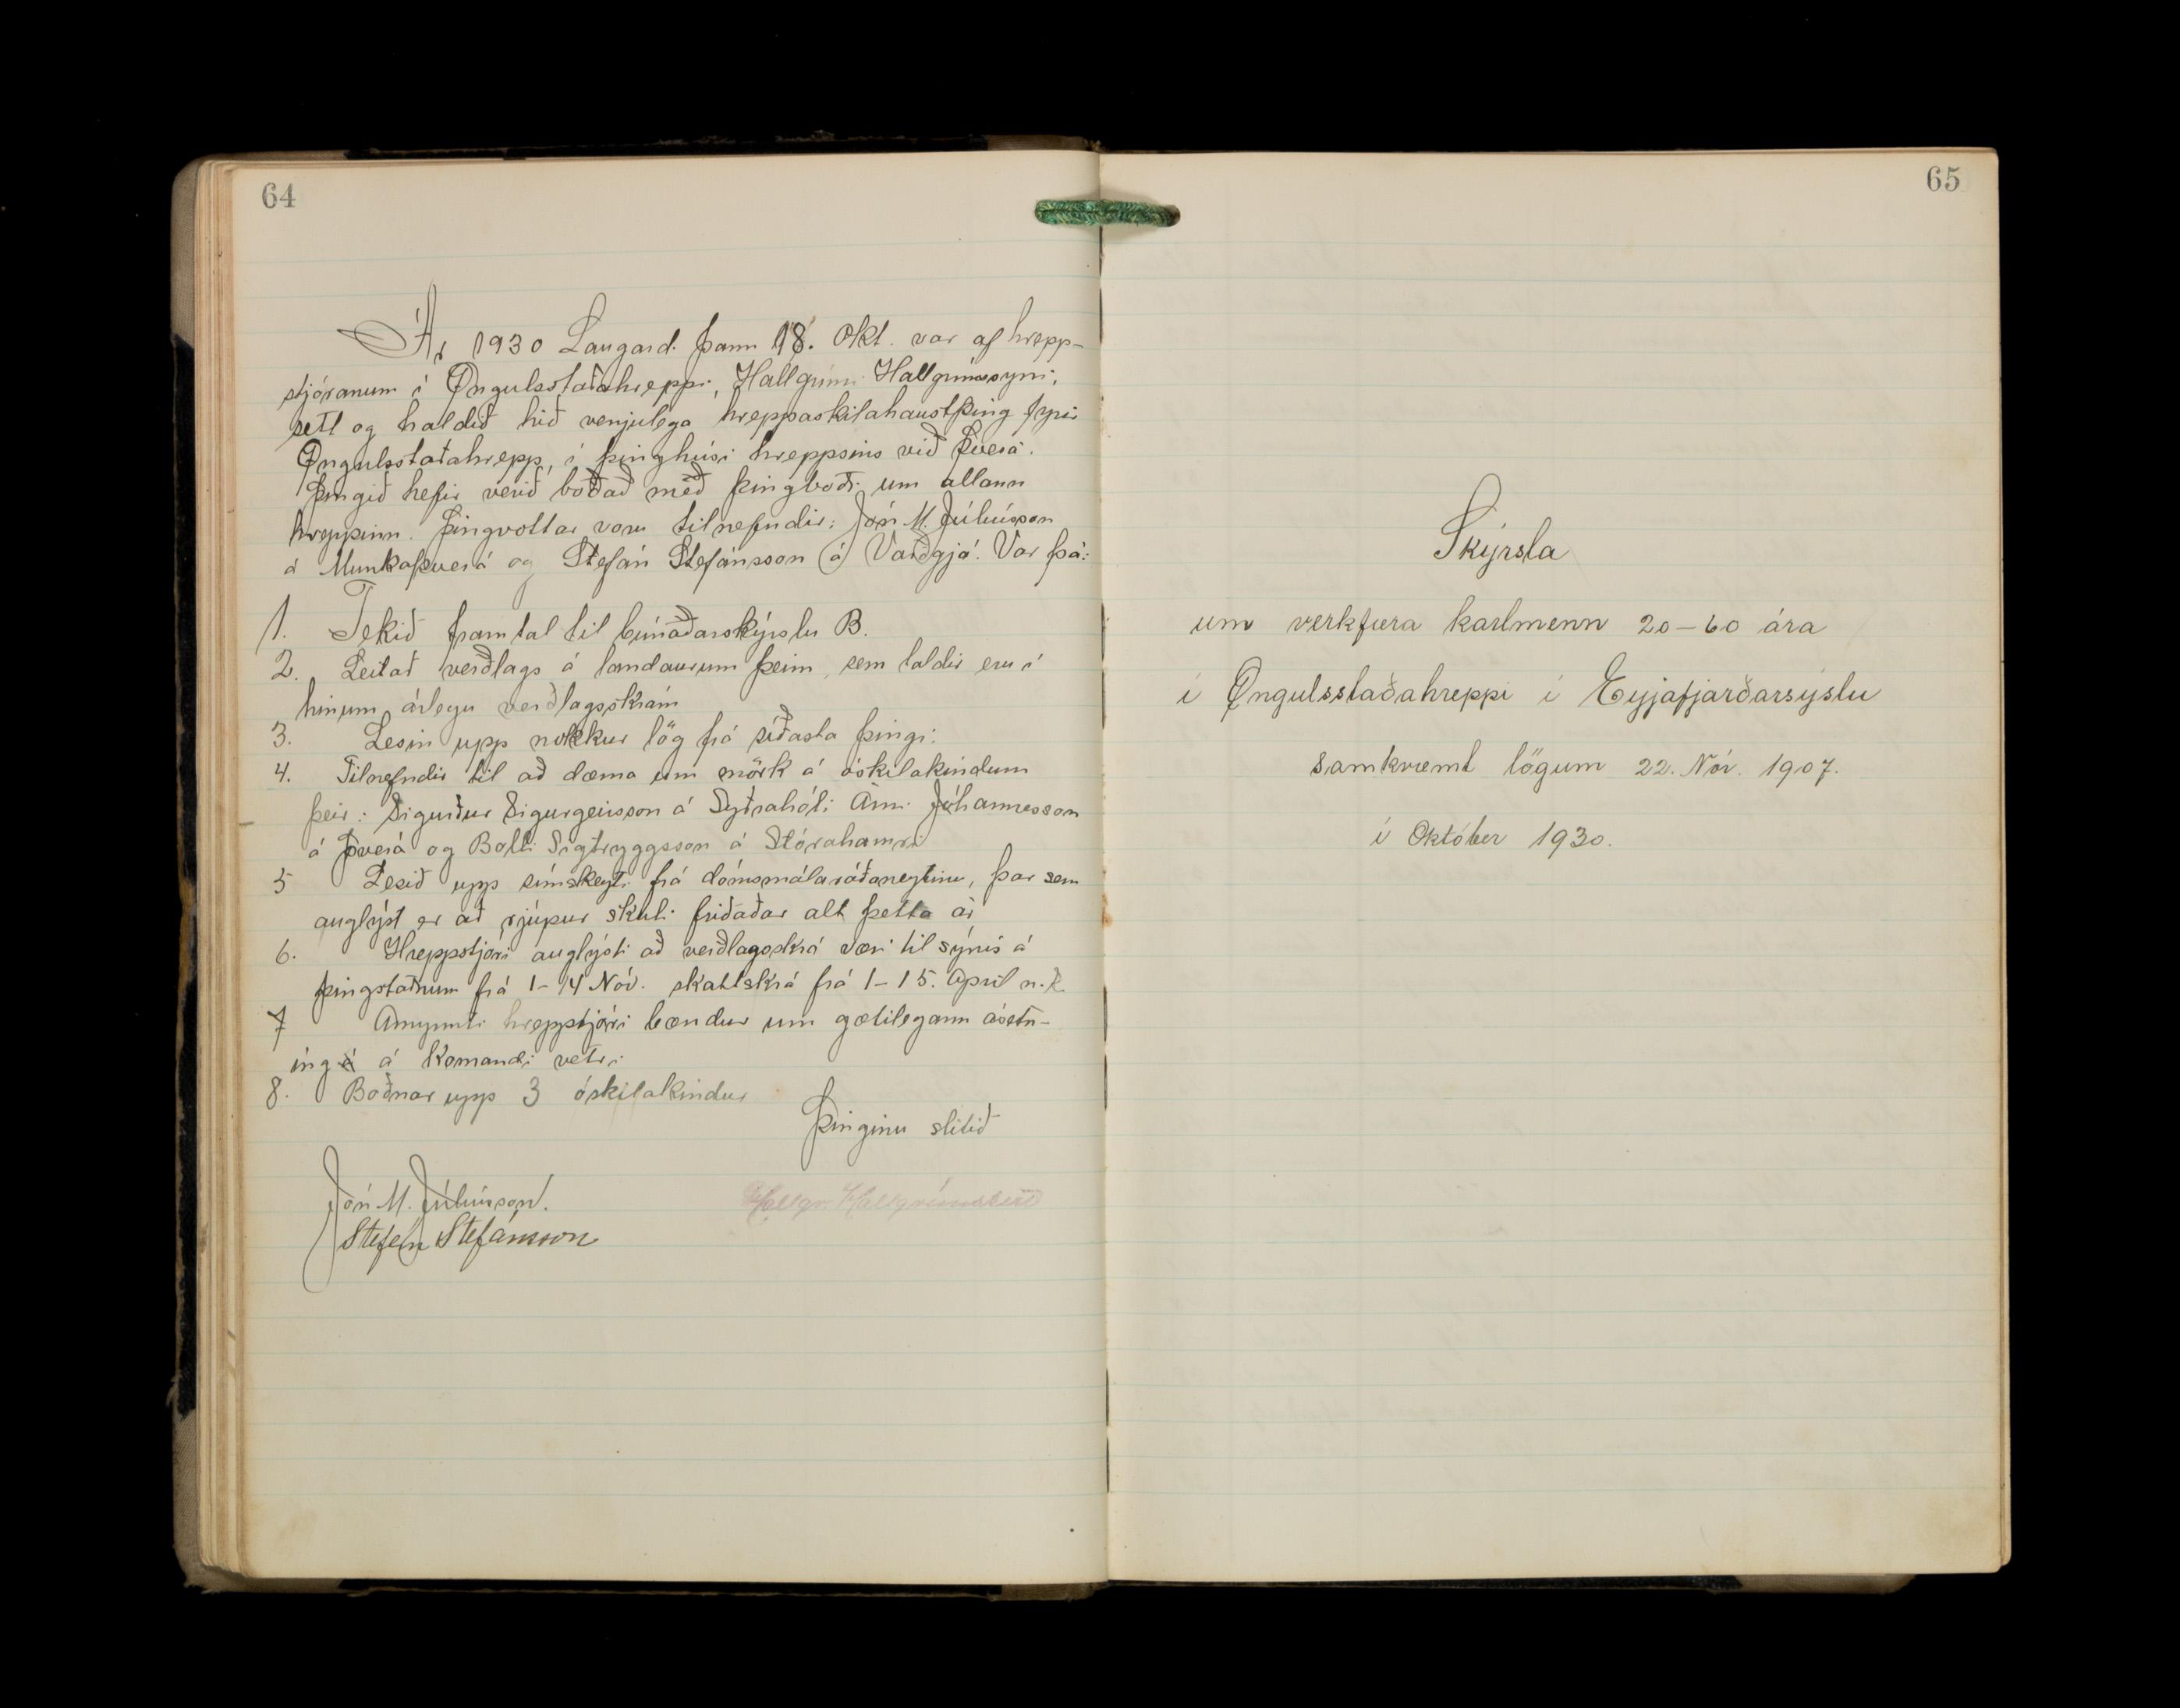 64
Ár 1930 Laugard. þann 18. Okt. var af hrepp-
stjóranum í Öngulsstaðahreppi, Hallgrími Hallgrímssyni,
sett og haldið hið venjulega hreppaskilahaustþing fyrir
Öngulsstaðahrepp, í þinghúsi hreppsins við Þverá.
Þingið hefir verið boðað með þingboði um allann
hreppinn. Þingvottar voru tilnefndir: Jón M. Júlíusson
á Munkaþverá og Stefán Stefánsson á Varðgjá. Var þá:
1. Tekið framtal til búnaðarskýrslu B.
2. Leitað verðlags á landaurum þeim, sem taldir eru í
hinum árlegu verðlagsskrám
3. Lesin upp nokkur lög frá síðasta þingi.
4. Tilnefndir til að dæma um mörk á óskilakindum
þeir: Sigurður Sigurgeirsson á Sytrahóli Árni Jóhannesson
á Þverá og Bolli Sigtryggsson á Stórahamri
5 Lesið upp símskeyti frá dómsmálaráðaneytinu, þar sem
auglýst er að rjúpur skuli friðaðar alt þetta ár
6. Hreppstjóri auglýsti að verðlagsskrá væri til sýnis á
þingstaðnum frá 1-14 Nóv. skattskrá frá 1-15. Apríl n.k
7 Amynnti hreppstjóri bændur um gætilegann ásetn-
ing á á komandi vetri
8. Boðnar upp 3 óskilakindur
Þinginu slitið
Jón M. Júlíusson.
Hallgr. Hallgrímsson
Stefán Stefánsson
65
Skýrsla
um verkfæra karlmenn 20-60 ára
í Öngulsstaðahreppi í Eyjafjarðarsýslu
samkvæmt lögum 22. Nóv. 1907.
í Október 1930.